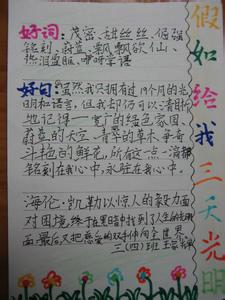 好词：茂密、甜丝丝、倔强
铭刻、蔚蓝、飘飘欲仙、
热泪盈眶、咿呀学语
好句：虽然我只拥有过19个月的光
明和语言，但我却仍可以清晰
地记得——宽广的绿色家园、
蔚蓝的天空、青翠的草木、争奇
斗艳的鲜花，所有这一点一滴都
铭刻在我心中，永驻在我心中。
海伦·凯勒以惊人的毅力面
对困境终于在黑暗中找到了人生的光明
面最后又把慈爱的双手伸向全世界。
三(四)班 王
假如给我三天光明